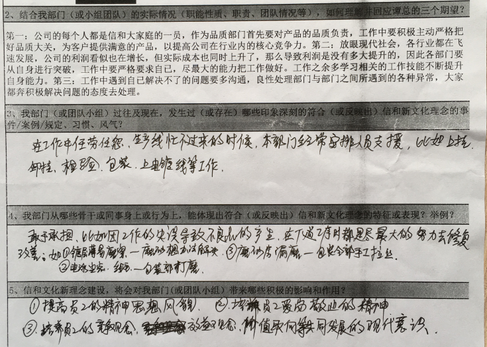 2、结合我部门(或小组团队)的实际情况(职能性质、职责、团队情况等),如何理解并回应谭总的三个期望?
第一:公司的每个人都是信和大家庭的一员,作为品质部门首先要对产品的品质负责,工作中要积极主动严格把
好品质大关,为客户提供满意的产品,以提高公司在行业内的核心竞争力。第二:放眼现代社会,各行业都在飞
速发展,公司的利润看似也在增长,但实际成本也同时上升了,那么导致利润是没有多大提升的,因此各部门要
从自身进行突破,工作中要严格要求自己,尽最大的能力把工作做好,工作之余多学习相关的工作技能不断提升
自身能力。第三:工作中遇到自己解决不了的问题要多沟通,良性处理部门与部门之间所遇到的各种异常,大家
都奔积极解决问题的态度去处理。
3、我部门(或小组团队)过往及现在,发生过(或存在)哪些印象深刻的符合(或反映出)信和新文化理念的事
件/案例/规定、习惯、风气?
在工作中任劳任怨,生产线忙不过来的时候,本部门经常安排人员支援,比如上挂,
卸挂,检验,包装,上电镀线等工作。
4、我部门从哪些骨干或同事身上或行为上,能体现出符合(或反映出)信和新文化理念的特征或表现?举例?
敢于承担,比如因工作的失误导致不良的产生,
5、信和文化理念建设,将会对我部门(或团队小组)带来哪些积极的影响和作用?
①提高员工的精神思想风貌 ②培养员工爱岗敬业的精神
③培养员工的 效益观念,价值取向等同发展的现代意识。